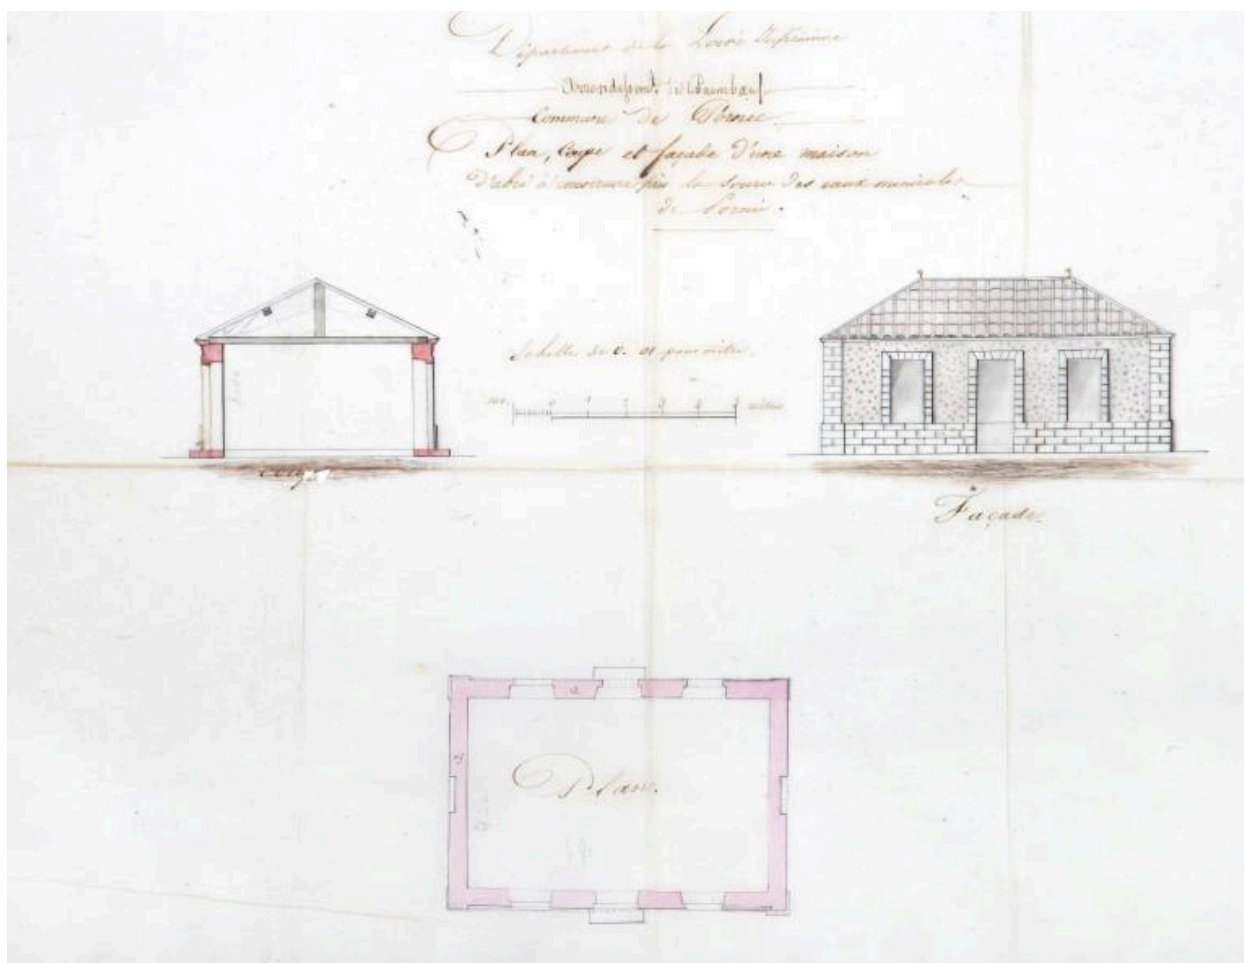 Département de la Loire Inférieure
Arrondissemt. de Paimbœuf
Commune de Pornic
Plan, Coupe et façade d'une maison
d'abri à construire près la source des eaux minérales
de Pornic.
Echelle de 0. 01 pour mètre.
0 1 2 3 4 5 mètres
Coupe
Façade.
Plan.